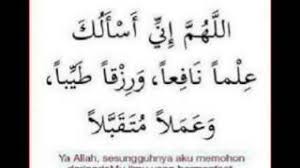 اللَّهُمَّ إِنِّي أَسْأَلُكَ
عِلْماً نَافِعاً، وَرِزْقاً طَيِّباً،
وَعَمَلاً مُتَقَبَّلاً
Ya Allah, sesungguhnya aku memohon